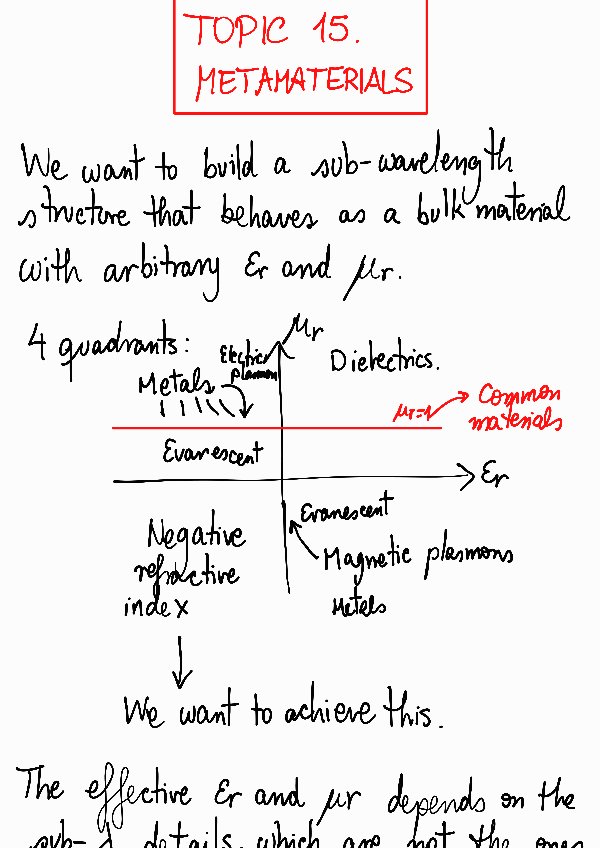 TOPIC 15.
METAMATERIALS
We want to build a sub-wavelength
structure that behaves as a bulk material
with arbitrary εr and μr.
4 quadrants:
μr
Electric
plasmon
Dielectrics.
Metals
μr=1
Common
materials
Evanescent
εr
Evanescent
Negative
refractive
index
Magnetic plasmons
Metals
We want to achieve this.
The effective εr and μr depends on the
sub-λ details, which are not the ones